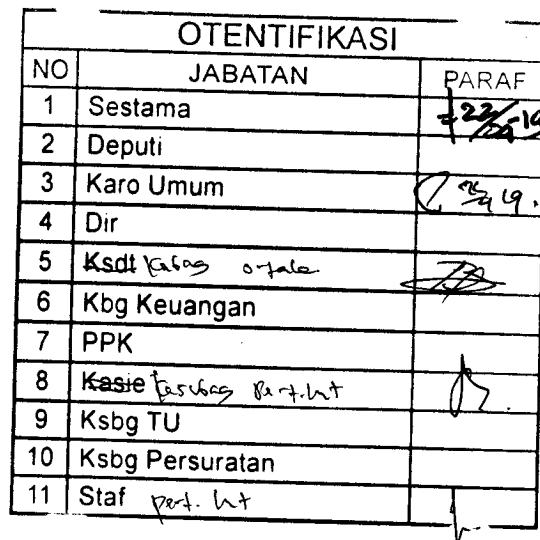 OTENTIFIKASI
NO JABATAN PARAF
1 Sestama
2 Deputi
3 Karo Umum
4 Dir
5 Ksdt Kabag
6 Kbg Keuangan
7 PPK
8 Kasie Kasubag
9 Ksbg TU
10 Ksbg Persuratan
11 Staf